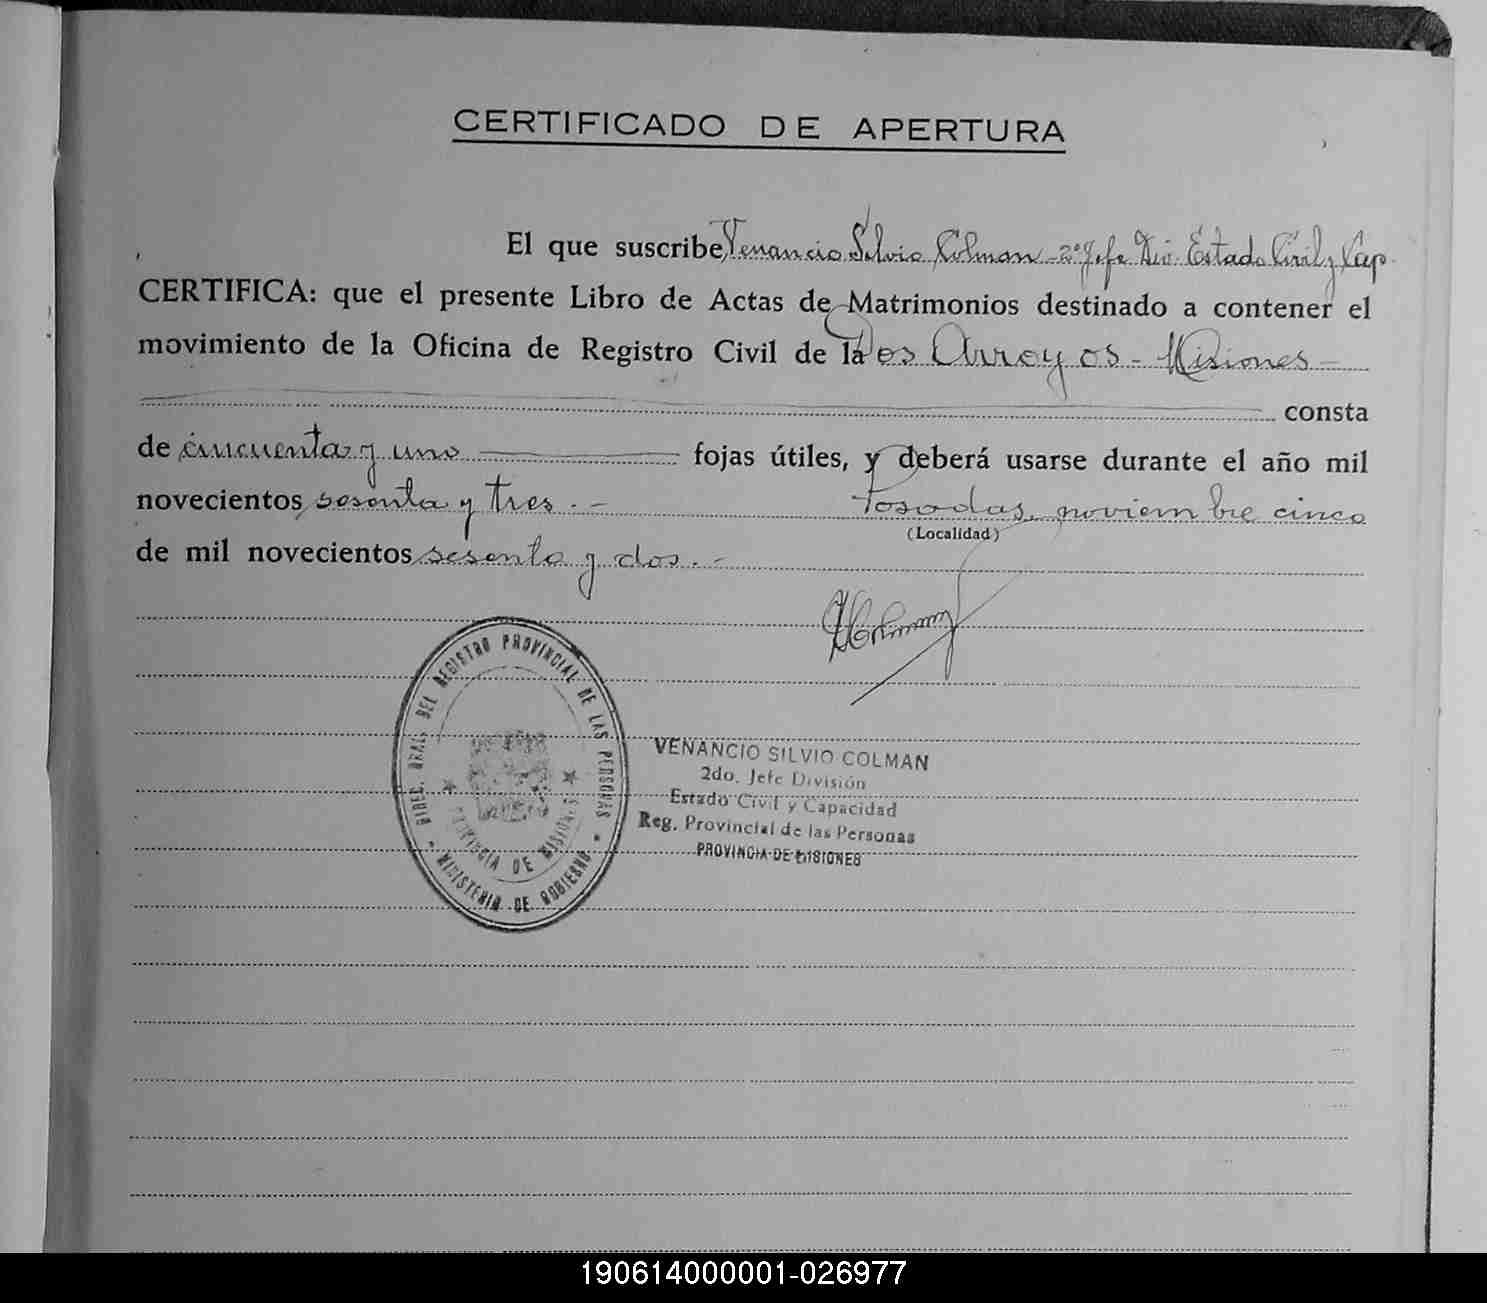 CERTIFICADO DE APERTURA
El que suscribe, Venancio Silvio Colman - 2º Jefe Div. Estado Civil y Cap.
CERTIFICA: que el presente Libro de Actas de Matrimonios destinado a contener el
movimiento de la Oficina de Registro Civil de la Dos Arroyos - Misiones -
consta
de cincuenta y uno fojas útiles, y deberá usarse durante el año mil
novecientos sesenta y tres. - Posadas, noviembre cinco
(Localidad)
de mil novecientos sesenta y dos. -
VColman
DIREC. GRAL. DEL REGISTRO PROVINCIAL DE LAS PERSONAS
PROVINCIA DE MISIONES
MINISTERIO DE GOBIERNO
VENANCIO SILVIO COLMAN
2do. Jefe División
Estado Civil y Capacidad
Reg. Provincial de las Personas
PROVINCIA DE MISIONES
190614000001-026977